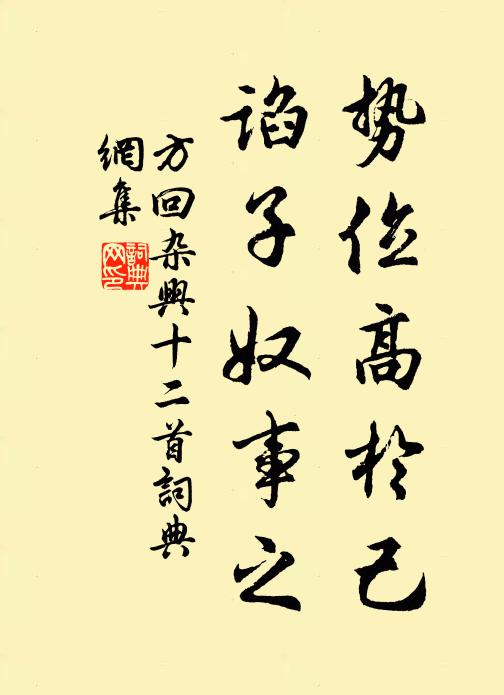 势位高於己
谄子奴事之
方回杂興十二首詞典
網集
詞典
网印